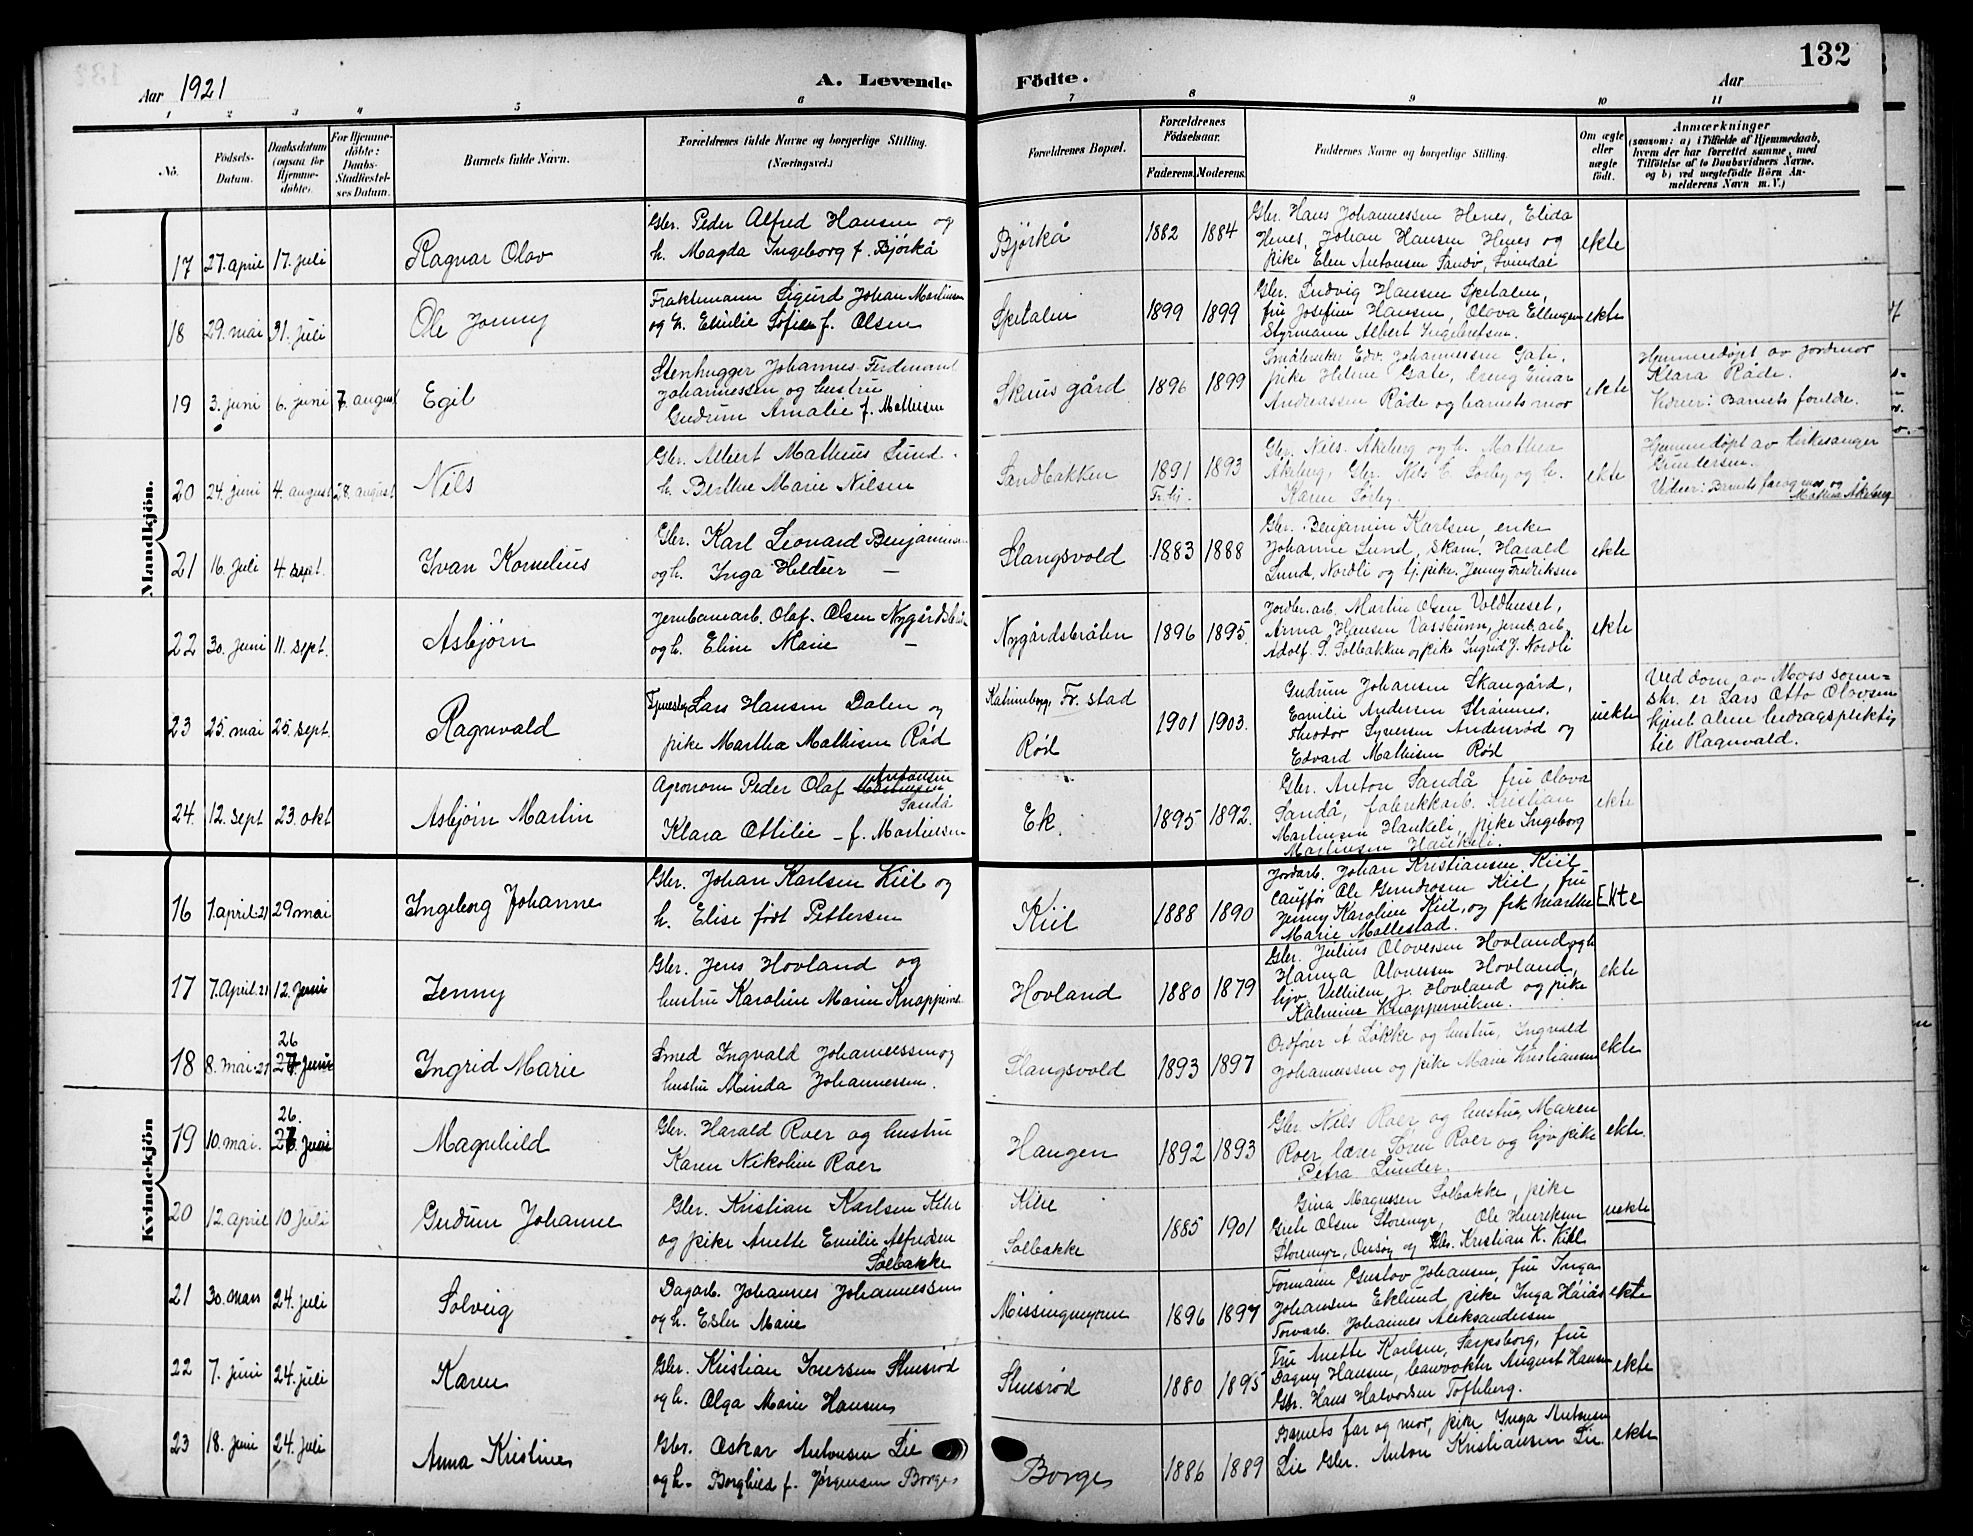 132
Aar 1921
A. Levende Fødte.
Aar
1 2 3 4 5 6 7 8 9 10 11
No.
Fødsels-Datum.
Daabsdatum (ogsaa for Hjemmedøbte).
For Hjemmedøbte: Daabs-Stadfæstelses Datum.
Barnets fulde Navn.
Forældrenes fulde Navne og borgerlige Stilling. (Næringsvei.)
Forældrenes Bopæl.
Forældrenes Fødselsaar.
Faderens. Moderens.
Faddernes Navne og borgerlige Stilling.
Om ægte eller uægte født.
Anmærkninger
(saasom: a) i Tilfælde af Hjemmedaab, hvem der har forrettet samme, med Tilføielse af to Daabsvidners Navne. og b) ved uægtefødte Børn Anmelderens Navn m. V.)
Mandkjön.
17 27. april 17. juli Ragnar Olav
Gbr. Peder Alfred Hansen og
h. Magda Ingeborg f. Bjørkå
Bjørkå 1882 1884
Gbr. Hans Johannessen Henes, Elida
Henes, Johan Hansen Henes og
pike Elen Antonsen Sandø, Svindal
ekte
18 29. mai 31. juli Ole Jonny
Fraktemann Sigurd Johan Martinsen
og h. Emilie Sofie f. Olsen
Spetalen 1899 1899
Gbr. Ludvig Hansen Spetalen,
fru Josefine Hansen, Olova Ellingsen
Styrmann Albert Ingebretsen.
ekte
19 3. juni 6. juni 7. august Egil
Stenhugger Johannes Ferdinand
Johannessen og hustru
Gudrun Amalie f. Mathisen
gård 1896 1899
Edv. Johannessen Gate,
pike Helene Gate, dreng Einar
Andreassen Råde og barnets mor
ekte
Hjemmedøpt av jordmor
Klara Råde.
Vidner: Barnets foreldre.
20 24. juni 4. august 28. august Nils
Gbr. Albert Mathius Lund
h. Berthe Marie Nilsen
Sandbakken 1891 1893
Fr.kj.
Gbr. Nils Åkeberg og h. Mathea
Åkeberg, Gbr. Nils E. Sørby og h.
Karen Sørby.
ekte
Hjemmedøpt av kirkesanger
Gundersen.
Vidner: Barnets far og mor og
Mathea Åkeberg
21 16. juli 4. sept. Ivan Kornelius
Gbr. Karl Leonard Benjaminsen
og h. Inga Heldur —
Slangsvold 1883 1888
Gbr. Benjamin Karlsen, enke
Johanne Lund, Skom. Harald
Lund, Nordli og tj. pike. Jenny Fredriksen
ekte
22 30. juni 11. sept. Asbjørn
Jernbanearb. Olaf Olsen Nygårdsbråten
og h. Eline Marie —
Nygårdsbråten 1896 1895.
Jordbr.arb. Martin Olsen Voldhuset,
Anna Hansen Vassbunn, jernb.arb.
Adolf S. Solbakken og pike Ingrid J. Nordli
ekte
23 25. mai 25. sept. Ragnvald
Lars Hansen Dalen og
pike Martha Mathisen Rød
Katrineborg, Fr. stad
Rød
1901 1903.
Gudrun Johansen Skangård,
Emilie Andersen Strømnes,
Theodor Syversen Andersrød og
Edvard Mathisen Rød
uekte
Ved dom av Moss sorenskr. er Lars Otto Olavsen
kjent alene bidragspliktig
til Ragnvald.
24. 12. sept 23. okt Asbjørn Martin
Agronom Peder Olaf Martinsen Antonsen
Sandå
Klara Ottilie – f. Martinsen
Ek. 1895 1892.
Gbr. Anton Sandå, fru Olava
Sandå, fabrikkarb. Kristian
Martinsen Haukeli, pike Ingeborg
Martinsen Haukeli.
ekte
Kvindekjön
16 7. april 21 29 mai Ingeborg Johanne
Gbr. Johan Karlsen Kiil og
h. Elise født Pettersen
Kiil 1888 1890
Jordarb. Johan Kristiansen Kiil
Ole Kiil, fru
Jenny Karoline Kiil, og frk Marthe
Marie Mollestad.
Ekte
17 7. April 21 12. juni Jenny
Gbr. Jens Hovland og
hustru Karoline Marie
Hovland 1880 1879
Gbr. Julius Olovessen Hovland og h
Hanna Olovessen Hovland,
tjv. Vilhelm J. Hovland og pike
Katrine Knapperviken.
ekte
18 8. mai 21 26 27. juni Ingrid Marie
Smed Ingvald Johannessen og
hustru Minda Johannessen.
Slangsvold 1893 1897
Ordfører A Løkke og hustru, Ingvald
Johannessen og pike Marie Kristiansen
ekte
19 10. mai. 26. 27. juni Magnhild
Gbr. Harald Roer og hustru
Karen Nikoline Roer
Haugen 1892 1893
Gbr Nils Roer og hustru, Maren
Roer lærer Soren Roer og tjv pike
Petra Lunder.
ekte.
20 12. april 10 juli Gudrun Johanne
Gbr. Kristian Karlsen Kihl
og pike Anette Emilie Alfredsen
Solbakke
Kihl
Solbakke
1885 1901
Gina Magnssen Solbakke, pike
Grete Olsen Storemyr, Ole Henriksen
Storemyr, Onsøy og Gbr. Kristian K. Kihl
uekte
21 30. mars 24. juli Solveig
Dagarb. Johannes Johannessen
og h. Ester Marie
Missingmyrene 1896 1897
Formann Gustav Johansen, fru Inga
Johansen Eklund pike Inga Haiås
Torvarb. Johannes Aleksandersen
ekte
22 7. juni 24. juli Karen
Gbr. Kristian Iversen
og h. Olga Marie Hansen
1880 1895
Fru Anette Karlsen, Sarpsborg, fru
Dagny Hansen, August Hansen
Gbr. Hans Halvorsen Tofteberg.
ekte
23 18. juni 24. juli Anna Kristine
Gbr. Oskar Antonsen Lie
og h. Borghild f. Jørgensen Borge
Borge 1886 1889
Barnets far og mor, pike Inga Antonsen
Lie Gbr. Anton Kristiansen Lie.
ekte